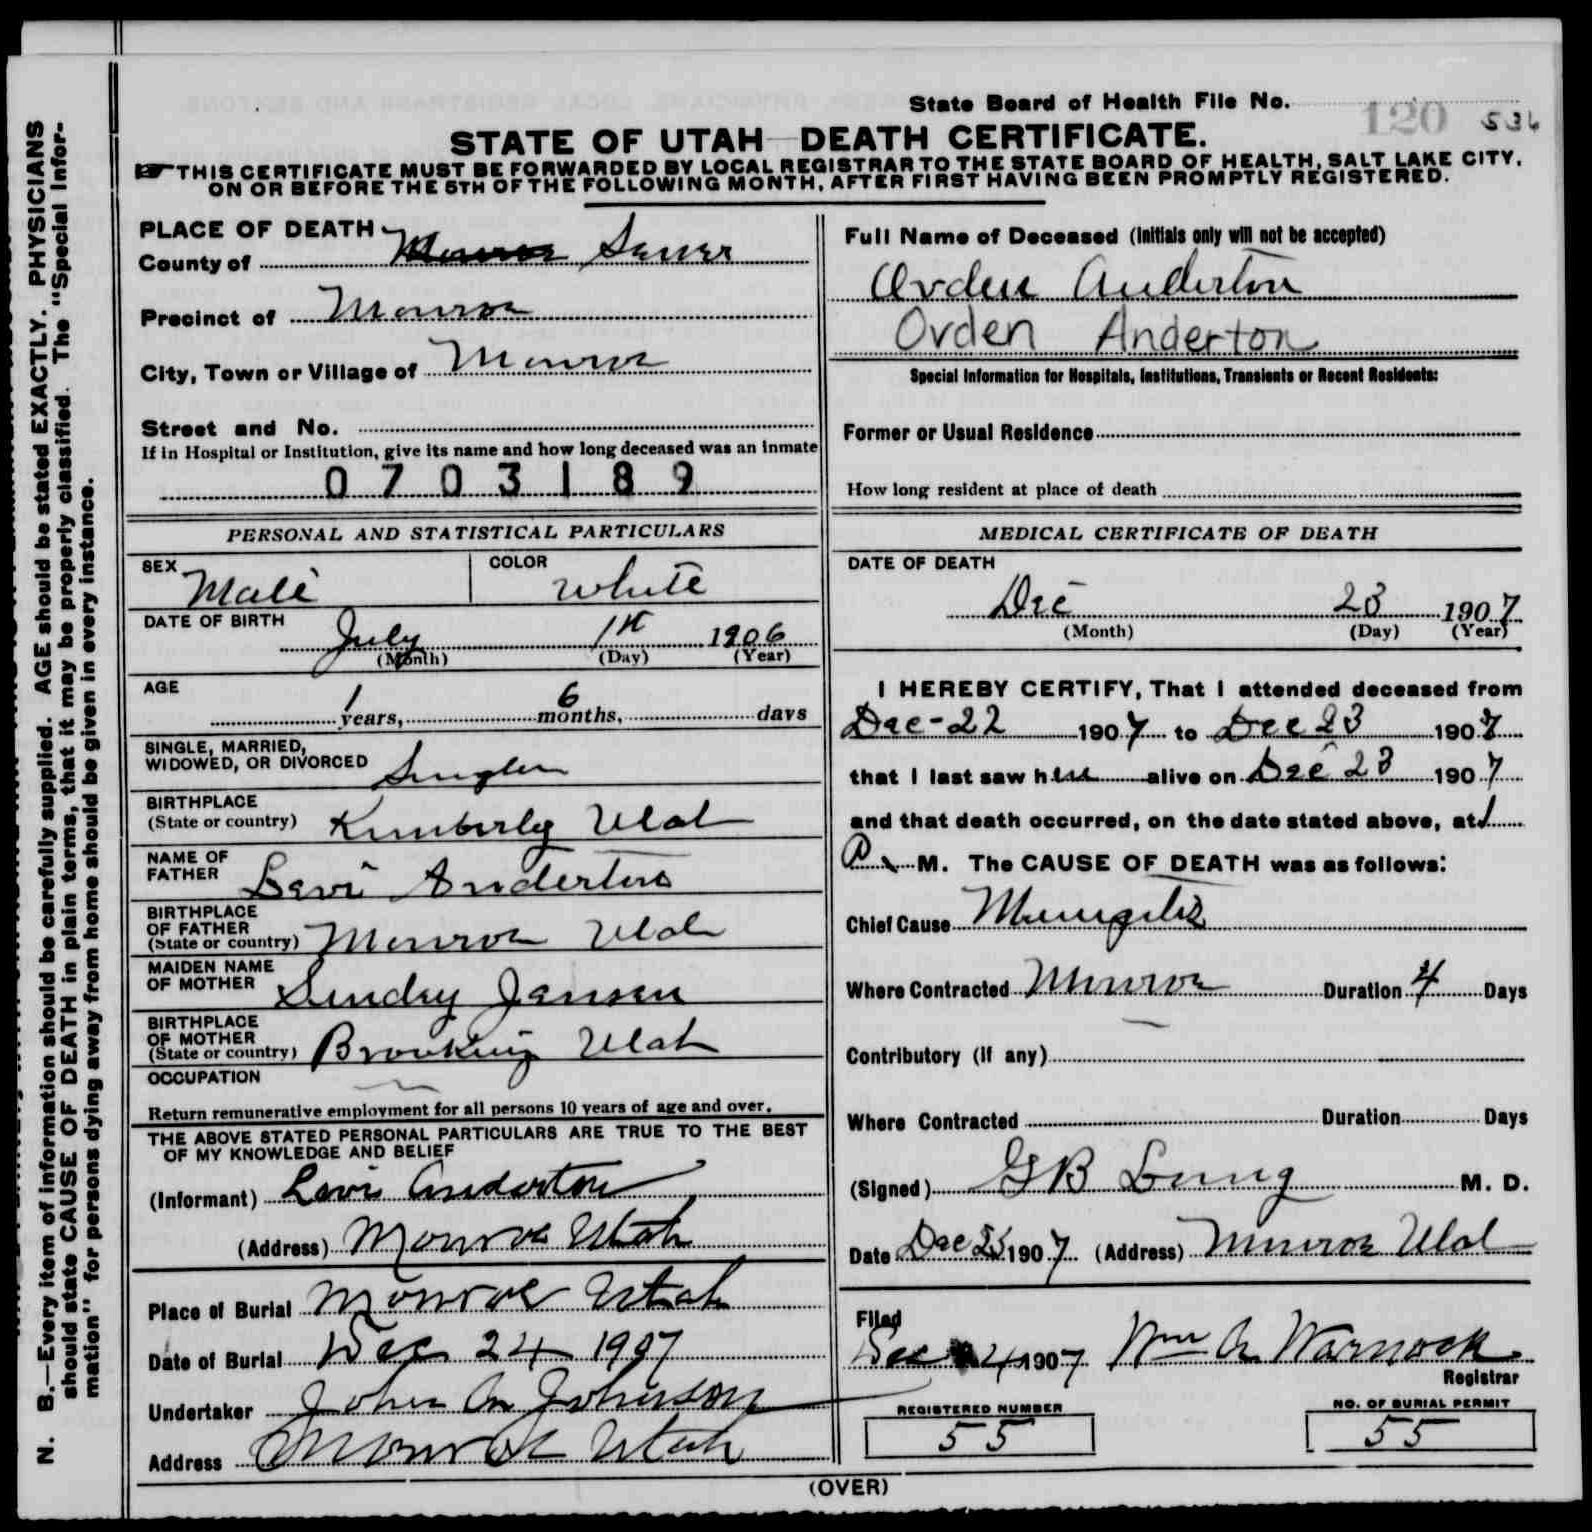 State Board of Health File No. 120 536
STATE OF UTAH—DEATH CERTIFICATE.
☞ THIS CERTIFICATE MUST BE FORWARDED BY LOCAL REGISTRAR TO THE STATE BOARD OF HEALTH, SALT LAKE CITY,
ON OR BEFORE THE 5TH OF THE FOLLOWING MONTH, AFTER FIRST HAVING BEEN PROMPTLY REGISTERED.
PLACE OF DEATH
County of Monroe Sevier
Precinct of Monroe
City, Town or Village of Monroe
Street and No.
If in Hospital or Institution, give its name and how long deceased was an inmate
0703189
Full Name of Deceased (Initials only will not be accepted)
Orden Anderton
Orden Anderton
Special Information for Hospitals, Institutions, Transients or Recent Residents:
Former or Usual Residence
How long resident at place of death
PERSONAL AND STATISTICAL PARTICULARS
SEX Male
COLOR White
DATE OF BIRTH
July 1st 1906
(Month) (Day) (Year)
AGE
1 years, 6 months, days
SINGLE, MARRIED,
WIDOWED, OR DIVORCED Single
BIRTHPLACE
(State or country) Kimberly Utah
NAME OF
FATHER Levi Anderton
BIRTHPLACE
OF FATHER
(State or country) Monroe Utah
MAIDEN NAME
OF MOTHER Jansen
BIRTHPLACE
OF MOTHER
(State or country) Utah
OCCUPATION
Return remunerative employment for all persons 10 years of age and over.
THE ABOVE STATED PERSONAL PARTICULARS ARE TRUE TO THE BEST
OF MY KNOWLEDGE AND BELIEF
(Informant) Levi Anderton
(Address) Monroe Utah
Place of Burial Monroe Utah
Date of Burial Dec 24 1907
Undertaker John A Johnson
Address Monroe Utah
MEDICAL CERTIFICATE OF DEATH
DATE OF DEATH
Dec 23 1907
(Month) (Day) (Year)
I HEREBY CERTIFY, That I attended deceased from
Dec-22 1907 to Dec 23 1907
that I last saw him alive on Dec 23 1907
and that death occurred, on the date stated above, at 1
P. M. The CAUSE OF DEATH was as follows:
Chief Cause Meningitis
Where Contracted Monroe Duration 4 Days
Contributory (if any)
Where Contracted Duration Days
(Signed) G B M. D.
Date Dec 1907 (Address) Monroe Utah
Filed
Dec 24 1907 Wm A Warnock
Registrar
REGISTERED NUMBER
55
NO. OF BURIAL PERMIT
55
(OVER)
N. B.—Every item of information should be carefully supplied. AGE should be stated EXACTLY. PHYSICIANS
should state CAUSE OF DEATH in plain terms, that it may be properly classified. The "Special Infor-
mation" for persons dying away from home should be given in every instance.